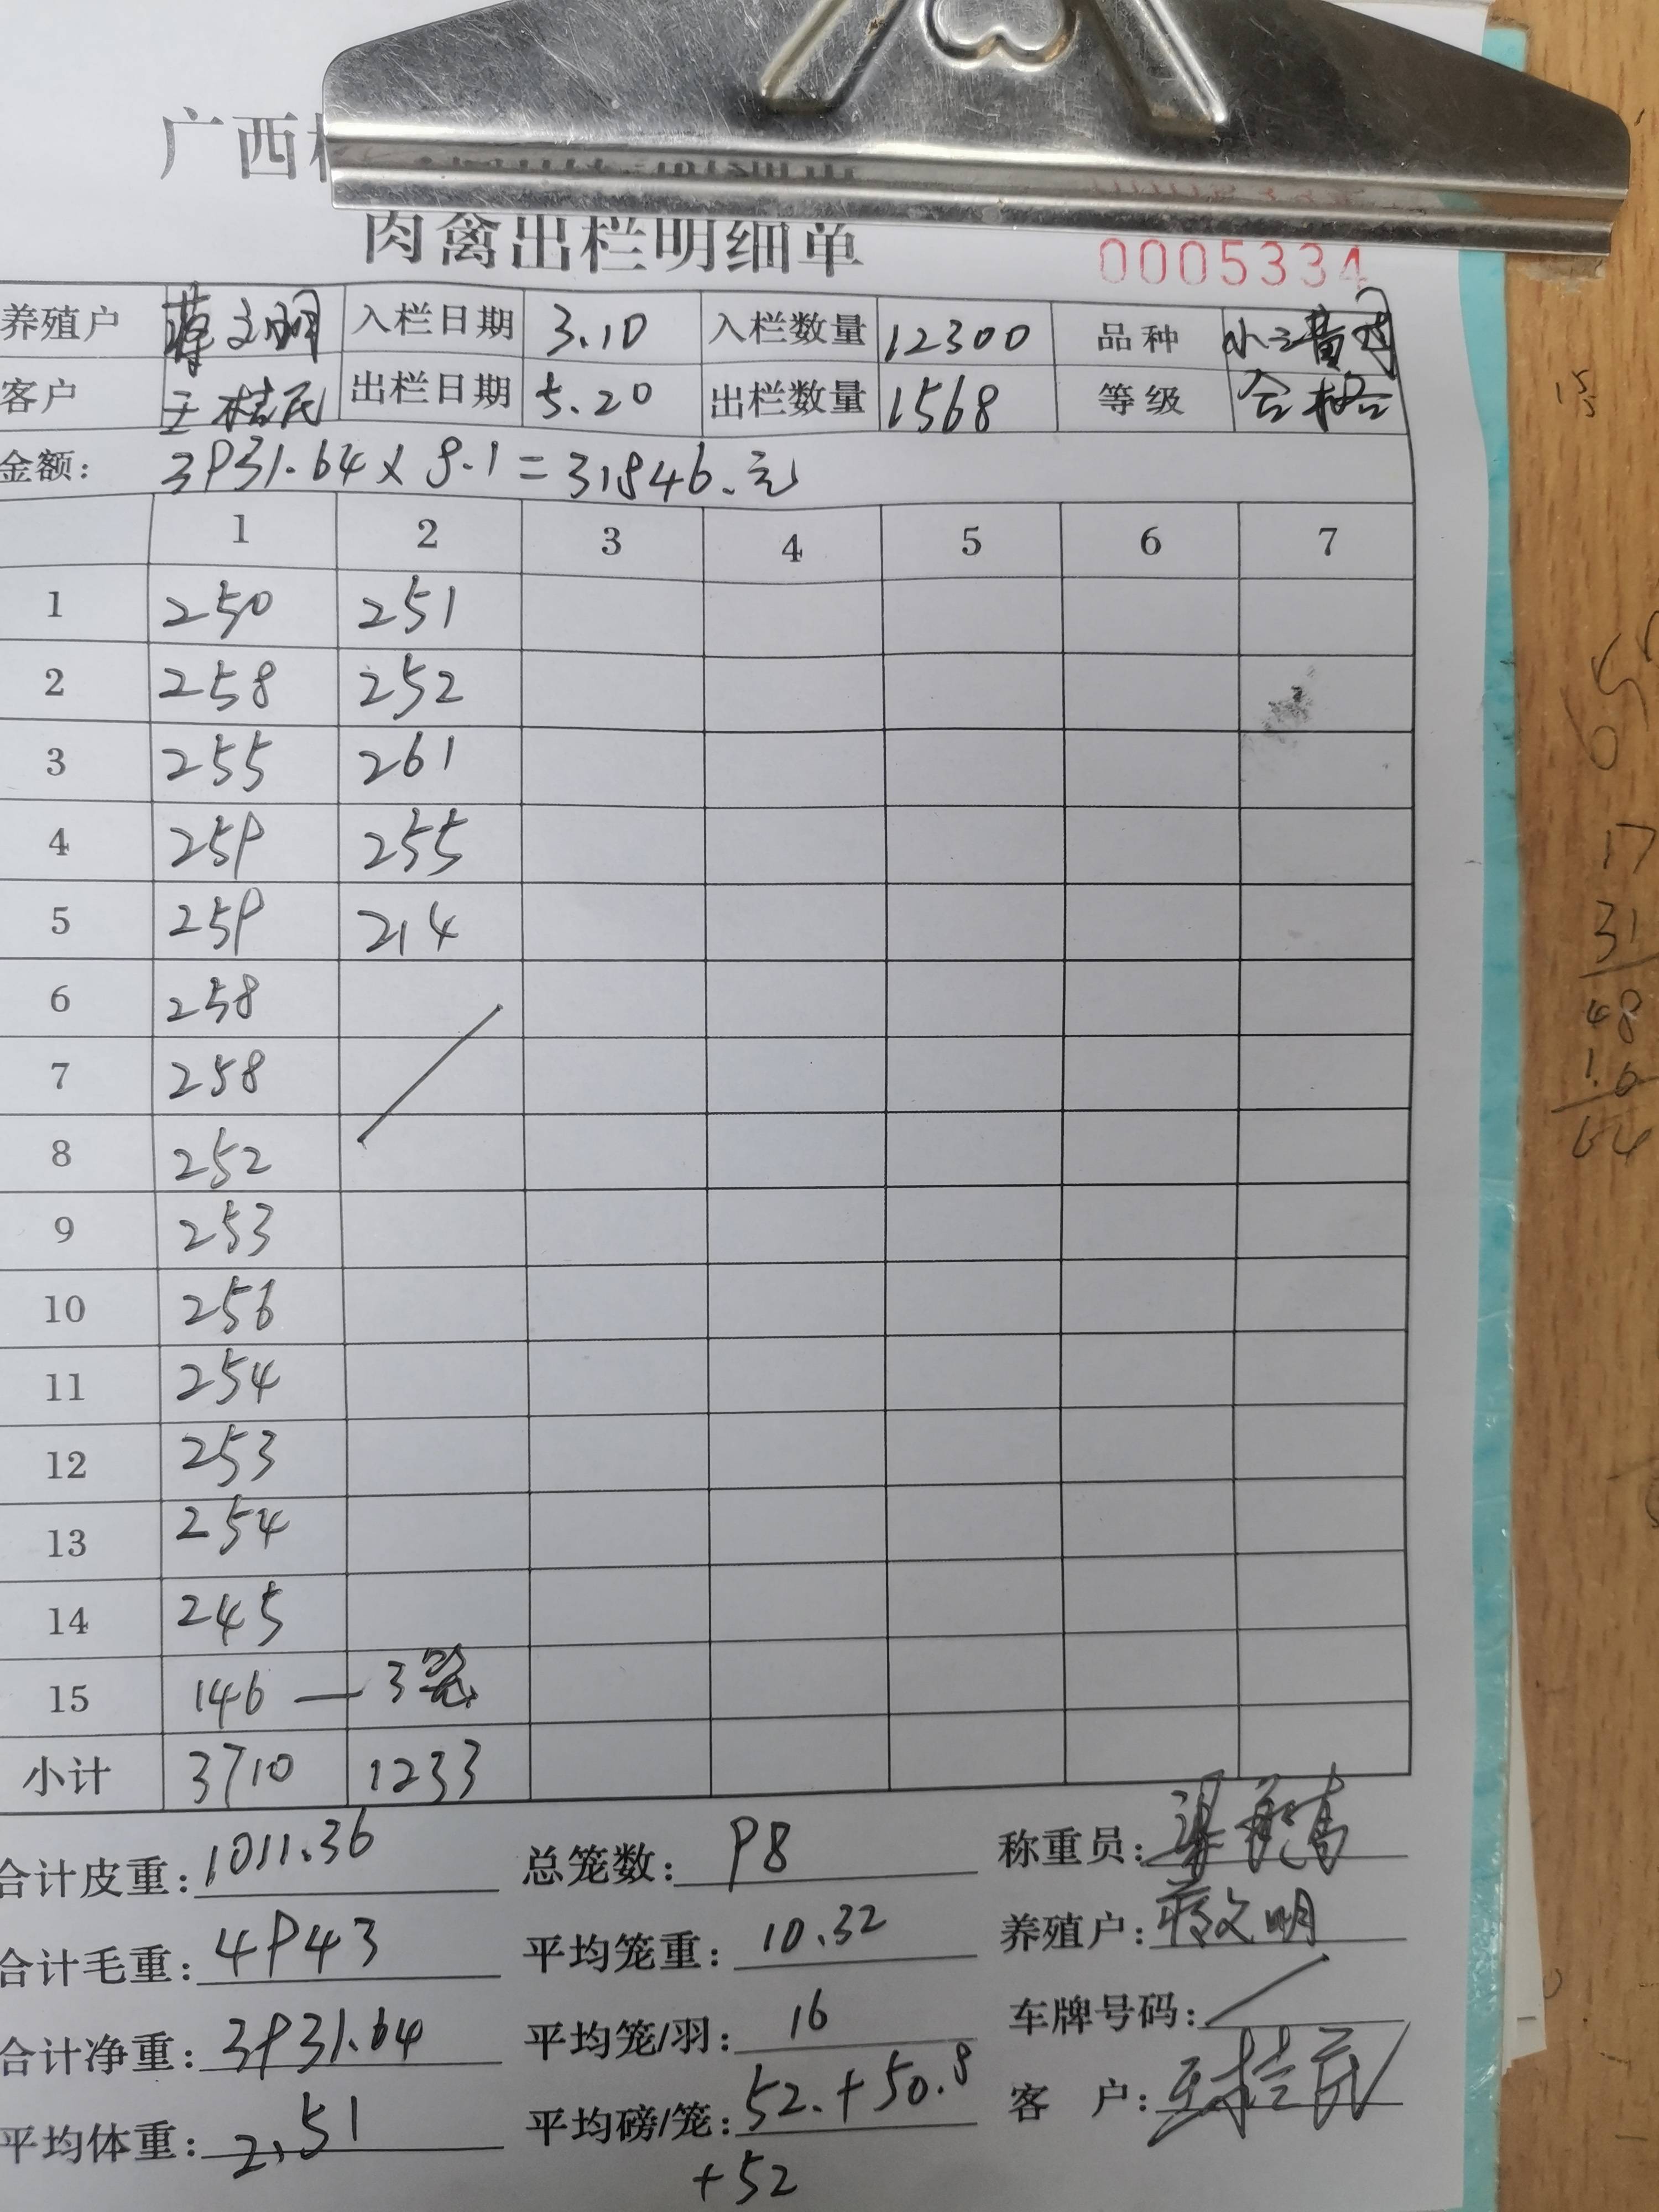 广西
肉禽出栏明细单 0005334
养殖户 蒋文明 入栏日期 3.10 入栏数量 12300 品种
客户 王桂民 出栏日期 5.20 出栏数量 1568 等级 合格
金额: 3931.64 x 8.1 = 31846.元
1 2 3 4 5 6 7
1 250 251
2 258 252
3 255 261
4 259 255
5 259 214
6 258
7 258
8 252
9 253
10 256
11 254
12 253
13 254
14 245
15 146 — 3笼
小计 3710 1233
合计皮重: 1011.36 总笼数: 98 称重员:
合计毛重: 4943 平均笼重: 10.32 养殖户: 蒋文明
合计净重: 3931.64 平均笼/羽: 16 车牌号码: /
平均体重: 2.51 平均磅/笼: 52.+50.8 客 户: 王桂民
+52
17
31
48
1.6
64